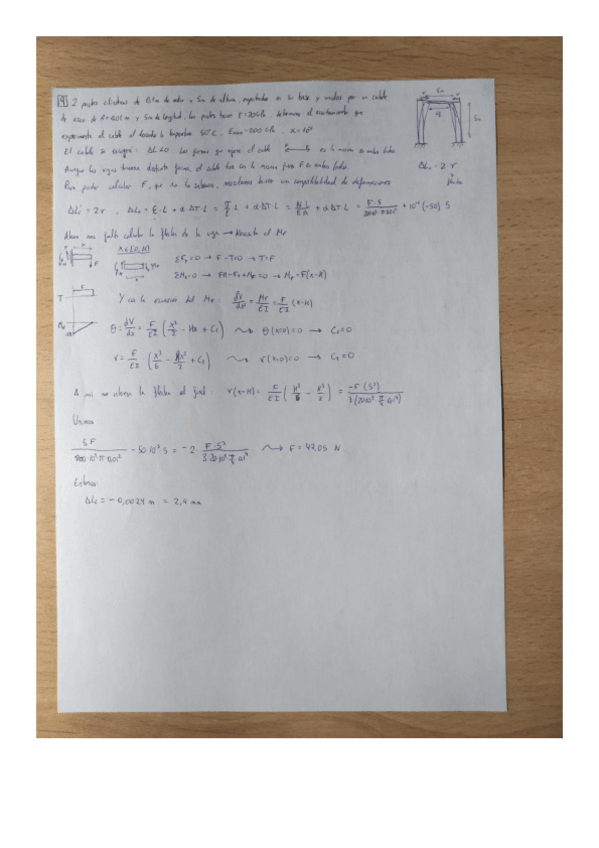 9 2 postes cilíndricos de 0,1m de radio y 5m de altura, empotrados en su base y unidos por un cable
de acero de R=0,01m y 5m de longitud. Los postes tienen E=20GPa. determinar el acortamiento que
experimenta el cable al descender la temperatura 50°C.
El cable se encogerá: ΔL<0. Las fuerzas que ejerce el cable es la misma en ambos lados
Aunque las vigas tuviesen distinta forma, el cable tira con la misma fuerza F en ambos lados.
Para poder calcular F, que no la sabemos, necesitamos buscar una compatibilidad de deformaciones
5m
5m
ΔLc = 2·v
flecha
ΔLc = 2v , ΔLc = ε·L + α·ΔT·L = σ/E·L + α·ΔT·L = N·L/EA + α·ΔT·L = F·5/200·10⁹·π·0,01² + 10⁻⁵(-50)·5
Ahora nos falta calcular la flecha de la viga → Necesito el Mf
x∈(0,H)
ΣFy=0 → F-T=0 → T=F
→ Mf=F(x-H)
T
Mf
Y con la ecuación del Mf: d²v/dx² = Mf/EI = F/EI (x-H)
θ = dv/dx = F/EI (x²/2 - Hx + C1) θ(x=0)=0 → C1=0
v = F/EI (x³/6 - Hx²/2 + C2) v(x=0)=0 → C2=0
A mi me interesa la flecha al final: v(x=H) = F/EI (H³/6 - H³/2) = -F(5³)/3(20·10⁹ π/4 0,1⁴)
Unimos:
5F/200·10⁹·π·0,01² - 50·10⁻⁵·5 = -2· F·5³/3·20·10⁹ π/4 0,1⁴ F = 47,05 N
Entonces:
ΔLc = -0,0024 m = 2,4 mm